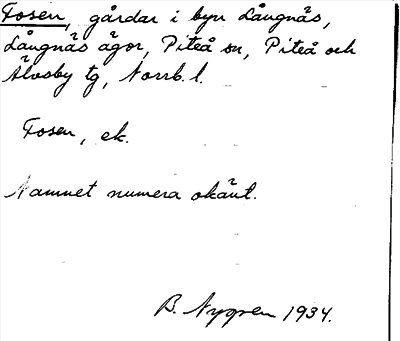 Fosen, gårdar i byn Långnäs,
Långnäs ägor, Piteå sn, Piteå och
Älvsby tg, Norrb. l.
Fosen, ek.
Namnet numera okänt.
B. Nygren 1934.